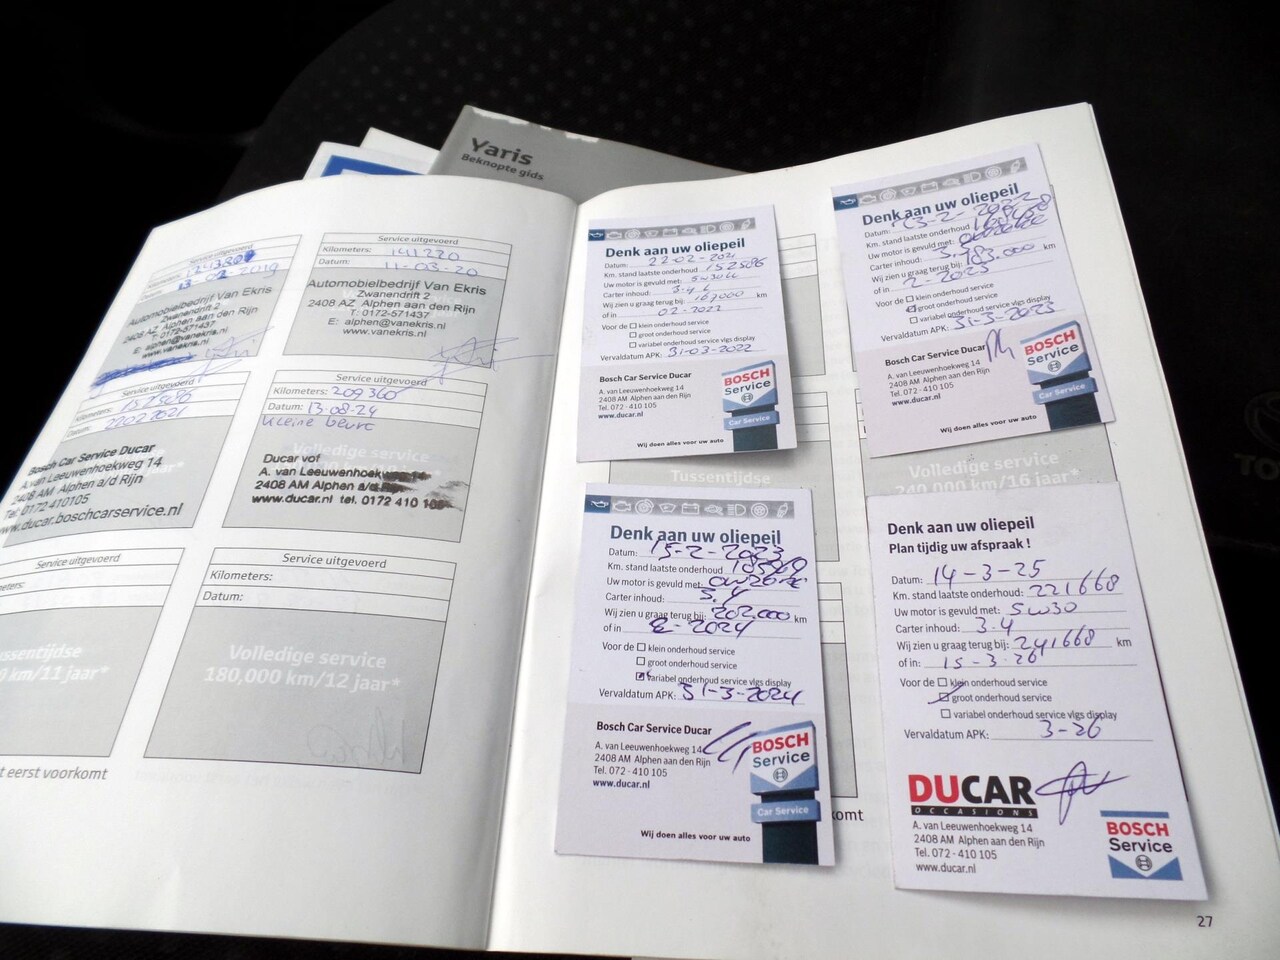 Yaris
Beknopte gids
Service uitgevoerd
Kilometers:
13-02-2019
Automobielbedrijf Van Ekris
Zwanendrift 2
2408 AZ Alphen aan den Rijn
T: 0172-571437
E: alphen@vanekris.nl
www.vanekris.nl
Service uitgevoerd
Kilometers: 141220
Datum: 11-03-20
Automobielbedrijf Van Ekris
Zwanendrift 2
2408 AZ Alphen aan den Rijn
T: 0172-571437
E: alphen@vanekris.nl
www.vanekris.nl
Service uitgevoerd
Kilometers: 152586
Datum: 22022021
Bosch Car Service Ducar
A. van Leeuwenhoekweg 14
2408 AM Alphen a/d Rijn
Tel. 0172 410105
www.ducar.boschcarservice.nl
Service uitgevoerd
Kilometers: 209360
Datum: 13-08-24
Kleine beurt
Volledige service
Ducar vof
A. van Leeuwenhoekweg
2408 AM Alphen a/d Rijn
www.ducar.nl tel. 0172 410
Service uitgevoerd
Service uitgevoerd
Kilometers:
Datum:
Volledige service
180,000 km/12 jaar*
ussentijdse
km/11 jaar*
t eerst voorkomt
Denk aan uw oliepeil
Datum: 22-02-2021
Km. stand laatste onderhoud 152586
Uw motor is gevuld met:
Carter inhoud: 3.4 L
Wij zien u graag terug bij: 167000 km
of in 02-2022
Voor de klein onderhoud service
groot onderhoud service
variabel onderhoud service vlgs display
Vervaldatum APK: 31-03-2022
Bosch Car Service Ducar
A. van Leeuwenhoekweg 14
2408 AM Alphen aan den Rijn
Tel. 072 - 410 105
www.ducar.nl
BOSCH
Service
Car Service
Wij doen alles voor uw auto
Denk aan uw oliepeil
Datum: -2-2022
Km. stand laatste onderhoud
Uw motor is gevuld met:
Carter inhoud:
Wij zien u graag terug bij: 183.000 km
of in 2-2023
Voor de klein onderhoud service
groot onderhoud service
variabel onderhoud service vlgs display
Vervaldatum APK: 31-3-2023
Bosch Car Service Ducar
A. van Leeuwenhoekweg 14
2408 AM Alphen aan den Rijn
Tel. 072 - 410 105
www.ducar.nl
BOSCH
Service
Car Service
Wij doen alles voor uw auto
Tussentijdse
Volledige service
240,000 km/16 jaar*
Denk aan uw oliepeil
Datum: 15-2-2023
Km. stand laatste onderhoud
Uw motor is gevuld met:
Carter inhoud: 3.4
Wij zien u graag terug bij: 202.000 km
of in 2-2024
Voor de klein onderhoud service
groot onderhoud service
variabel onderhoud service vlgs display
Vervaldatum APK: 31-3-2024
Bosch Car Service Ducar
A. van Leeuwenhoekweg 14
2408 AM Alphen aan den Rijn
Tel. 072 - 410 105
www.ducar.nl
BOSCH
Service
Car Service
Wij doen alles voor uw auto
komt
Denk aan uw oliepeil
Plan tijdig uw afspraak !
Datum: 14-3-25
Km. stand laatste onderhoud: 221668
Uw motor is gevuld met: 5w30
Carter inhoud: 3.4
Wij zien u graag terug bij: 241668 km
of in: 15-3-26
Voor de klein onderhoud service
groot onderhoud service
variabel onderhoud service vlgs display
Vervaldatum APK: 3-26
DUCAR
OCCASIONS
A. van Leeuwenhoekweg 14
2408 AM Alphen aan den Rijn
Tel. 072 - 410 105
www.ducar.nl
BOSCH
Service
27